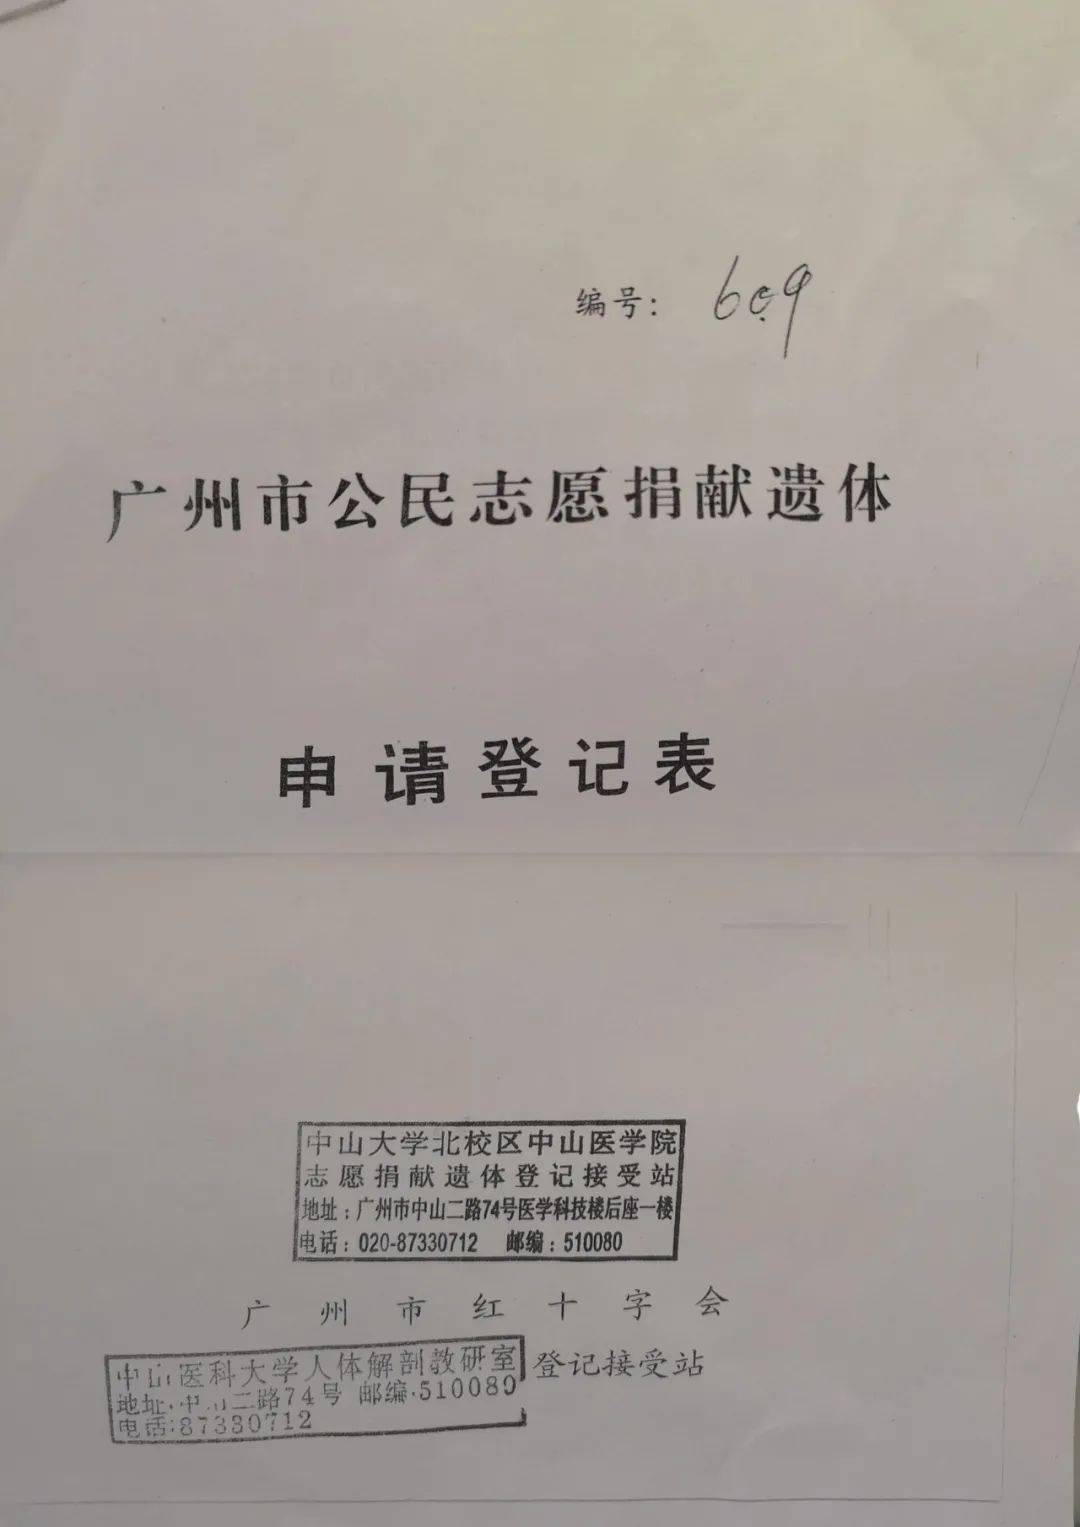 编号： 609
广州市公民志愿捐献遗体
申请登记表
中山大学北校区中山医学院
志愿捐献遗体登记接受站
地址：广州市中山二路74号医学科技楼后座一楼
电话：020-87330712 邮编：510080
广州市红十字会
中山医科大学人体解剖教研室 登记接受站
地址:中山二路74号 邮编:510080
电话:87330712